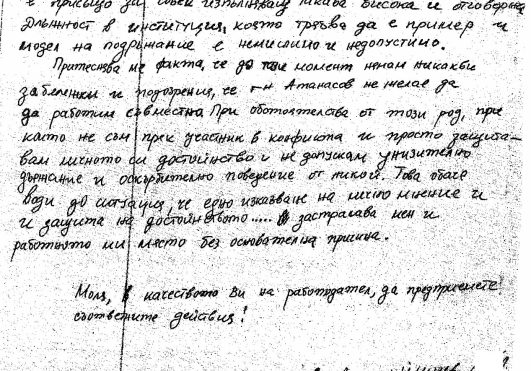 е присъщо за човек изпълняващ такава висока и отговорна
длъжност в институция, която трябва да е пример и
модел на подражание е немислимо и недопустимо.
Притеснява ме факта, че до този момент нямам никакви
забележки и подозрения, че г-н Атанасов не желае да
да работим съвместна. При обстоятелства от този род, при
които не съм пряк участник в конфликта и просто защита-
вам личното си достойнство и не допускам унизително
държание и оскърбително поведение от никой. Това обаче
води до ситуация, че едно изказване на лично мнение и
и защита на достойнството..... застрашава мен и
работното ми място без основателна причина.
Моля, в качеството Ви на работодател, да предприемете
съответните действия!